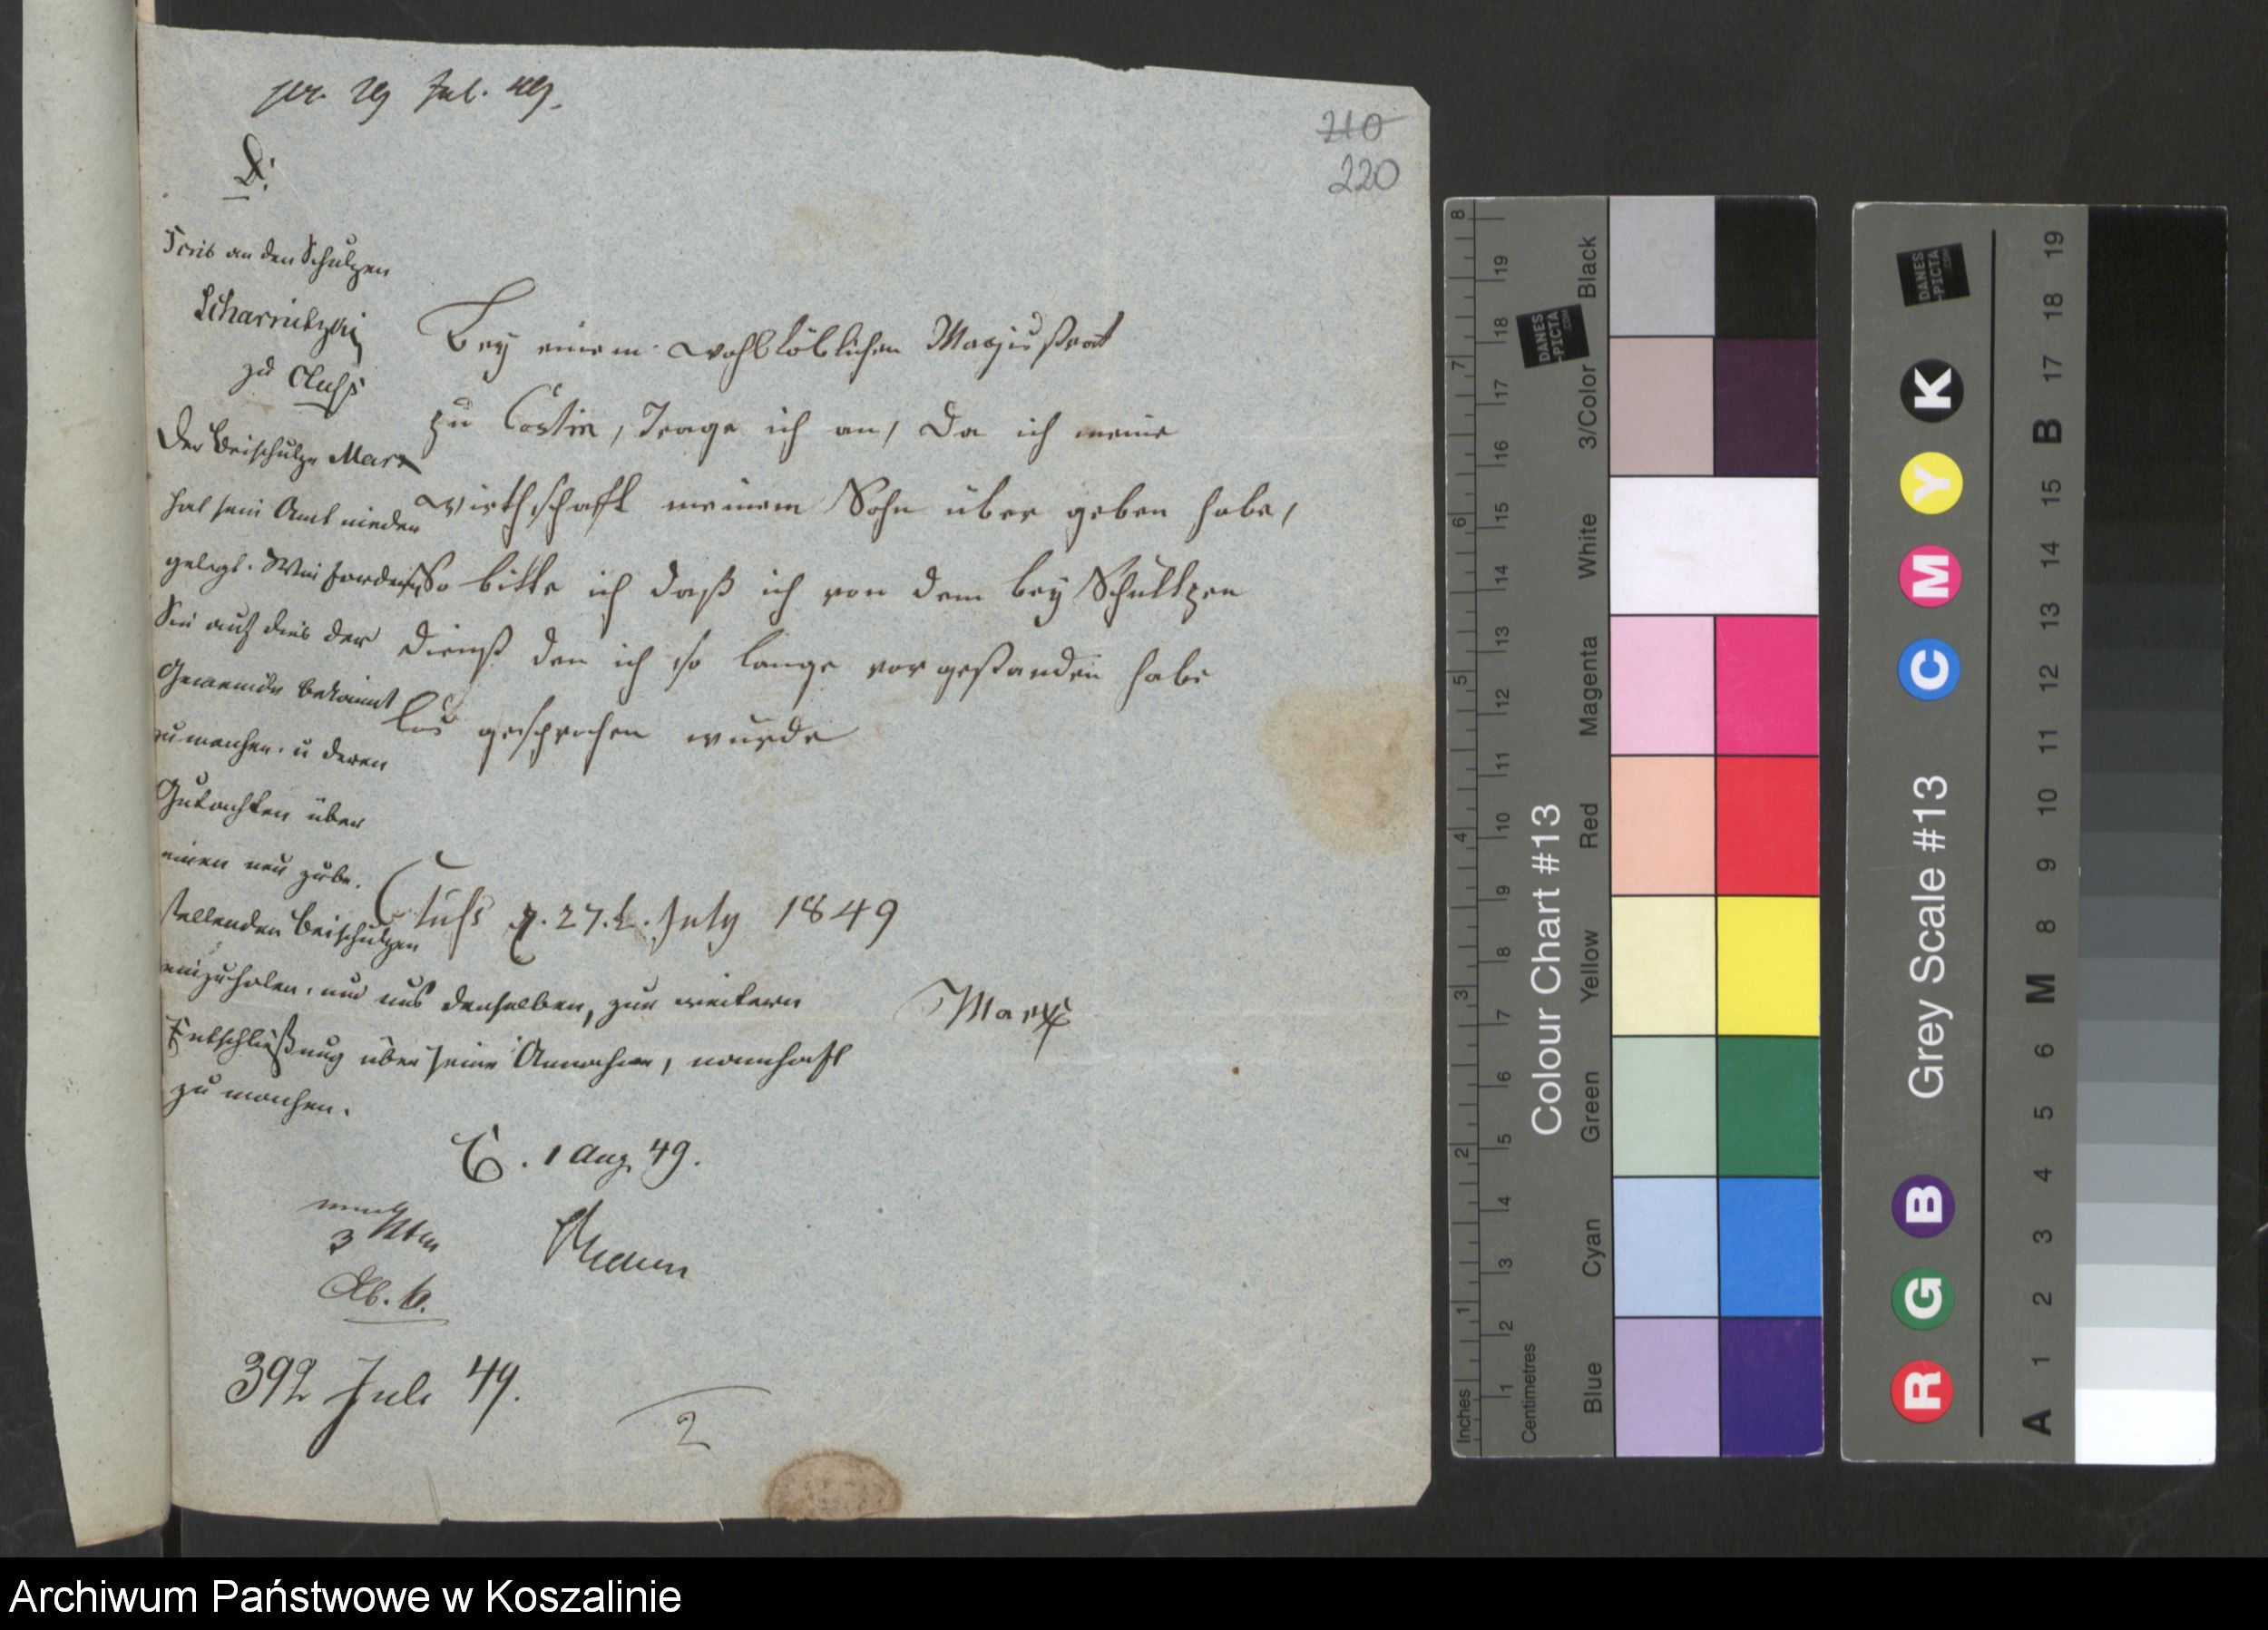 pr. 29 Jul. 49.
210
220
D:
Scrib an den Schulzen
Scharnitzki
zu Cluss
Der Beischulze Marx
hat sein Amt nieder
gelegt. Wir fordern
Sie auf dies der
Gemeinde bekannt
zu machen. u deren
Gutachten über
einen neu zube-
stellenden Beischulzen
einzuholen, und uns denselben, zur weitern
Entschließung über seine Annahme, namhaft
zu machen.
C. 1 Aug 49.
Bey einem wohllöblichen Magißrat
zu Cöslin, Trage ich an, Da ich meine
wirthschaft meinem Sohn über geben habe,
So bitte ich daß ich von dem bey Schultzen
dienst den ich so lange vor gestanden habe
los gesprochen wurde
Cluss d. 27. t. July 1849
Marx
392 Juli 49.
2
Inches
Centimetres
Colour Chart #13
Blue
Cyan
Green
Yellow
Red
Magenta
White
3/Color
Black
DANES
-PICTA
.COM
Grey Scale #13
R G B C M Y K
A 1 2 3 4 5 6 M 8 9 10 11 12 13 14 15 B 17 18 19
DANES
-PICTA
.COM
Archiwum Państwowe w Koszalinie